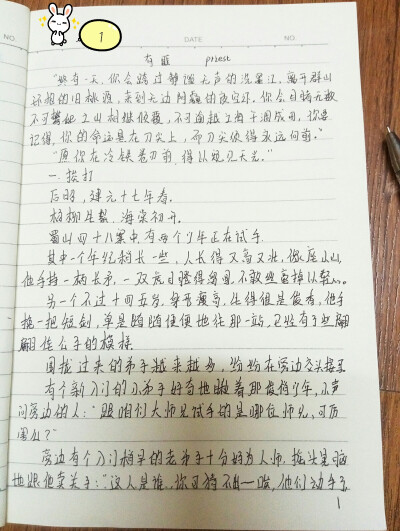 NO.
DATE
NO.
1
有匪 priest
“终有一天,你会跨过静谧无声的洗墨江,离开群山
环抱的旧桃源,来到无边阴霾的夜空下。你会目睹无数
不可攀爬之山相继倾覆,不可逾越之海干涸成田,你要
记得,你的命运悬在刀尖上,而刀尖须得永远向前。”
“愿你在冷铁卷刃前,得以窥见天光。”
一 挨打
后昭,建元十七年春。
杨柳生絮,海棠初开。
蜀山四十八寨中,有两个少年正在试手
其中一个年纪稍长一些,人长得又高又壮,像座小山,
他手持一柄长矛,一双虎目瞪得溜圆,不敢些重掉以轻心。
另一个不过十四五岁,身形瘦高,生得很是俊秀,他手
挽一把短剑,单是随随便便地往那一站,已经有了些翩
翩佳公子的模样。
围拢过来的弟子越来越多,纷纷在旁边交头接耳
有个新入门的小弟子好奇地瞅着那俊俏少年,小声
问旁边的人:“跟咱们大师兄试手的是哪位师兄,可厉
害么?”
旁边有个入门稍早的老弟子十分好为人师,摇头晃脑
地跟他卖关子:“这人是谁,你可猜不出—唉,他们动手了
1